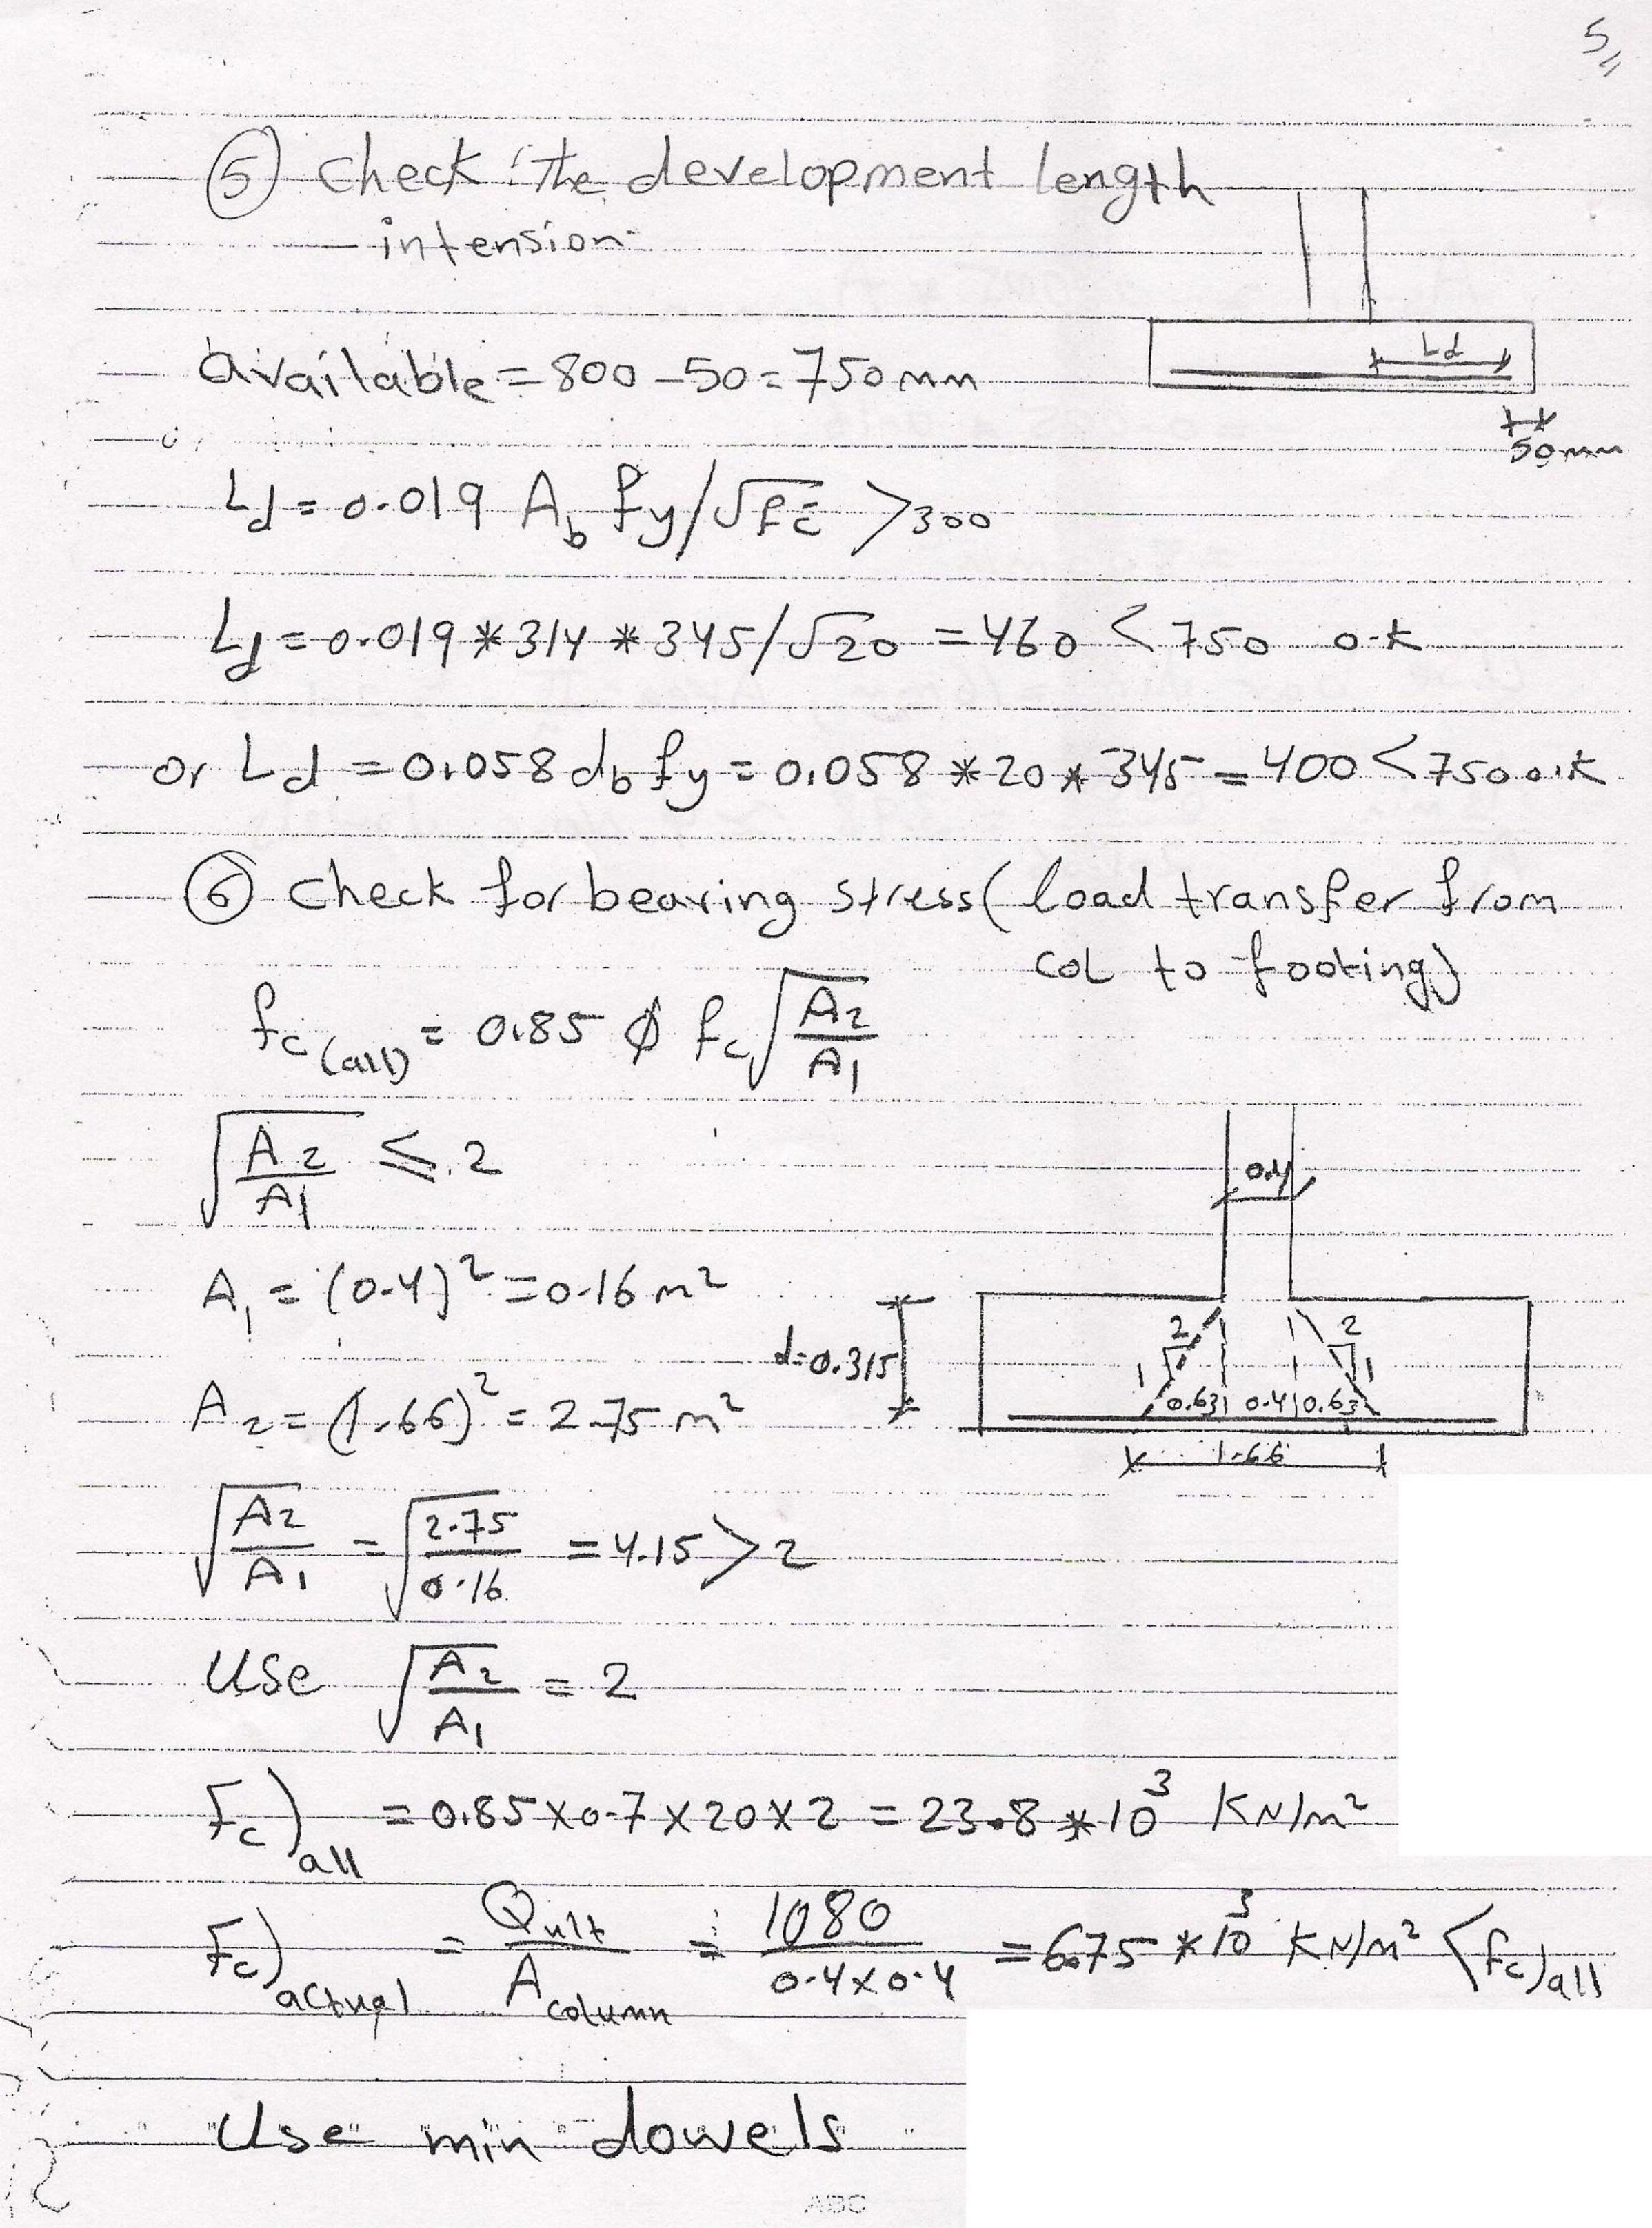 5
⑤ Check the development length
intension
Ld
available = 800 - 50 = 750 mm
50mm
Ld = 0.019 Ab fy/√fc̄ > 300
Ld = 0.019 * 314 * 345/√20 = 460 < 750 o.k
or Ld = 0.058 db fy = 0.058 * 20 * 345 = 400 < 750 o.k
⑥ Check for bearing stress (load transfer from
col to footing)
fc(all) = 0.85 ϕ fc √(A2/A1)
√(A2/A1) ≤ 2
0.4
A1 = (0.4)² = 0.16 m²
2 2
d=0.315
1 1
0.63 0.4 0.63
A2 = (1.66)² = 2.75 m²
1.66
√(A2/A1) = √(2.75/0.16) = 4.15 > 2
Use √(A2/A1) = 2
Fc)all = 0.85 x 0.7 x 20 x 2 = 23.8 * 10³ KN/m²
Fc)actual = Qult/Acolumn = 1080/0.4x0.4 = 6.75 * 10³ KN/m² < fc)all
Use min dowels
ABC